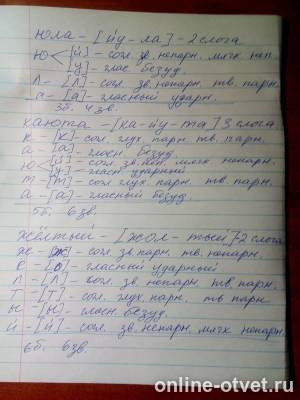 юла - [йу - ла] - 2 слога
ю < [й] - согл. зв. непарн. мягк. неп.
[у] - глас. безуд.
л - [л] - согл. зв. непарн. тв. парн.
а - [а] - гласный ударн.
3б. 4зв.
каюта - [ка - йу - та] 3 слога
к - [к] - сол. глух. парн. тв. парн.
а - [а] - гласн. безуд.
ю < [й] - согл. зв. неп. мягк. непарн.
[у] - гласн. ударный
т - [т] - сол. глух. парн. тв. парн.
а - [а] - гласный безуд.
5б. 6зв.
жёлтый - [жол - тый] - 2 слога
ж - [ж] - согл. зв. парн. тв. непарн.
ё - [о] - гласный ударный
л - [л] - согл. зв. непарн. тв. парн.
т - [т] - согл. глух. парн. тв. парн
ы - [ы] - гласн. безуд.
й - [й] - согл. зв. непарн. мягк. непарн.
6б. 6зв.
online-otvet.ru